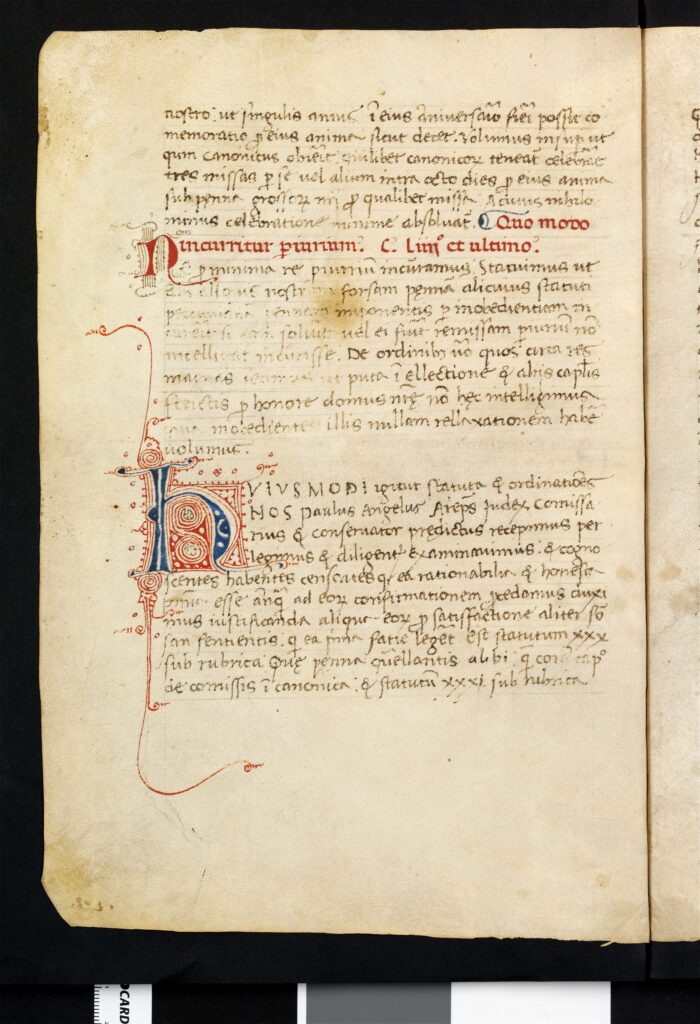 nostro: ut singulis annis ī eius āniversaꝛio fieri possit co
memoratio ꝑ eius anima sicut decet. Volumus
qum Canonicus obierit quilibet canonicoꝝ teneat celebrare
tres missas ꝑ se vel alium intra octo dies ꝓ eius anima
sub penna grossoꝝ iiij ꝓ qualibet missa. A cuius nihilo
minus celebratione minime absolvat. Quo modo
incurritur ꝑiurium. C. Liiijº et ultimo.
Ne ꝓ minima re ꝑiuriū incuramus. Statuimus ut
nostrū forsam pennā alicuius statuti
pennam imponentis ꝑ inobedientiam in
solvit vel ei fiūt remissam ꝑiuriū nō
intelligat incurisse. De ordinibꝫ ūo quos circa res
magnas ut puta ī ellectione & aliis caplis
strictis ꝓ honore domus nrē nō hęc intelligimus
inobedientes illis nullam rellaxationem habē
volumus.
HVIVSMODI igitur statuta & ordinationes
NOS Paulus Angelus Index Comissa
rius & conservator predictus recepimus per
legimus & diligentē examinavimus. & cogno
scentes habentes censcātes qꝫ ea rationabilia & honesta
esse anꝗ̄ ad eoꝝ confirmationem ꝓcedamus duxi
mus iustificanda aliqua eoꝝ ꝓ satisfactione aliter
san sentientis. q̄ ea prima facie legēt. Est statutum xxx
sub rubrica. Quę penna quellantis alibi q̄ corā capº
de comissis ī canonica. & statutū xxxi sub rubrica